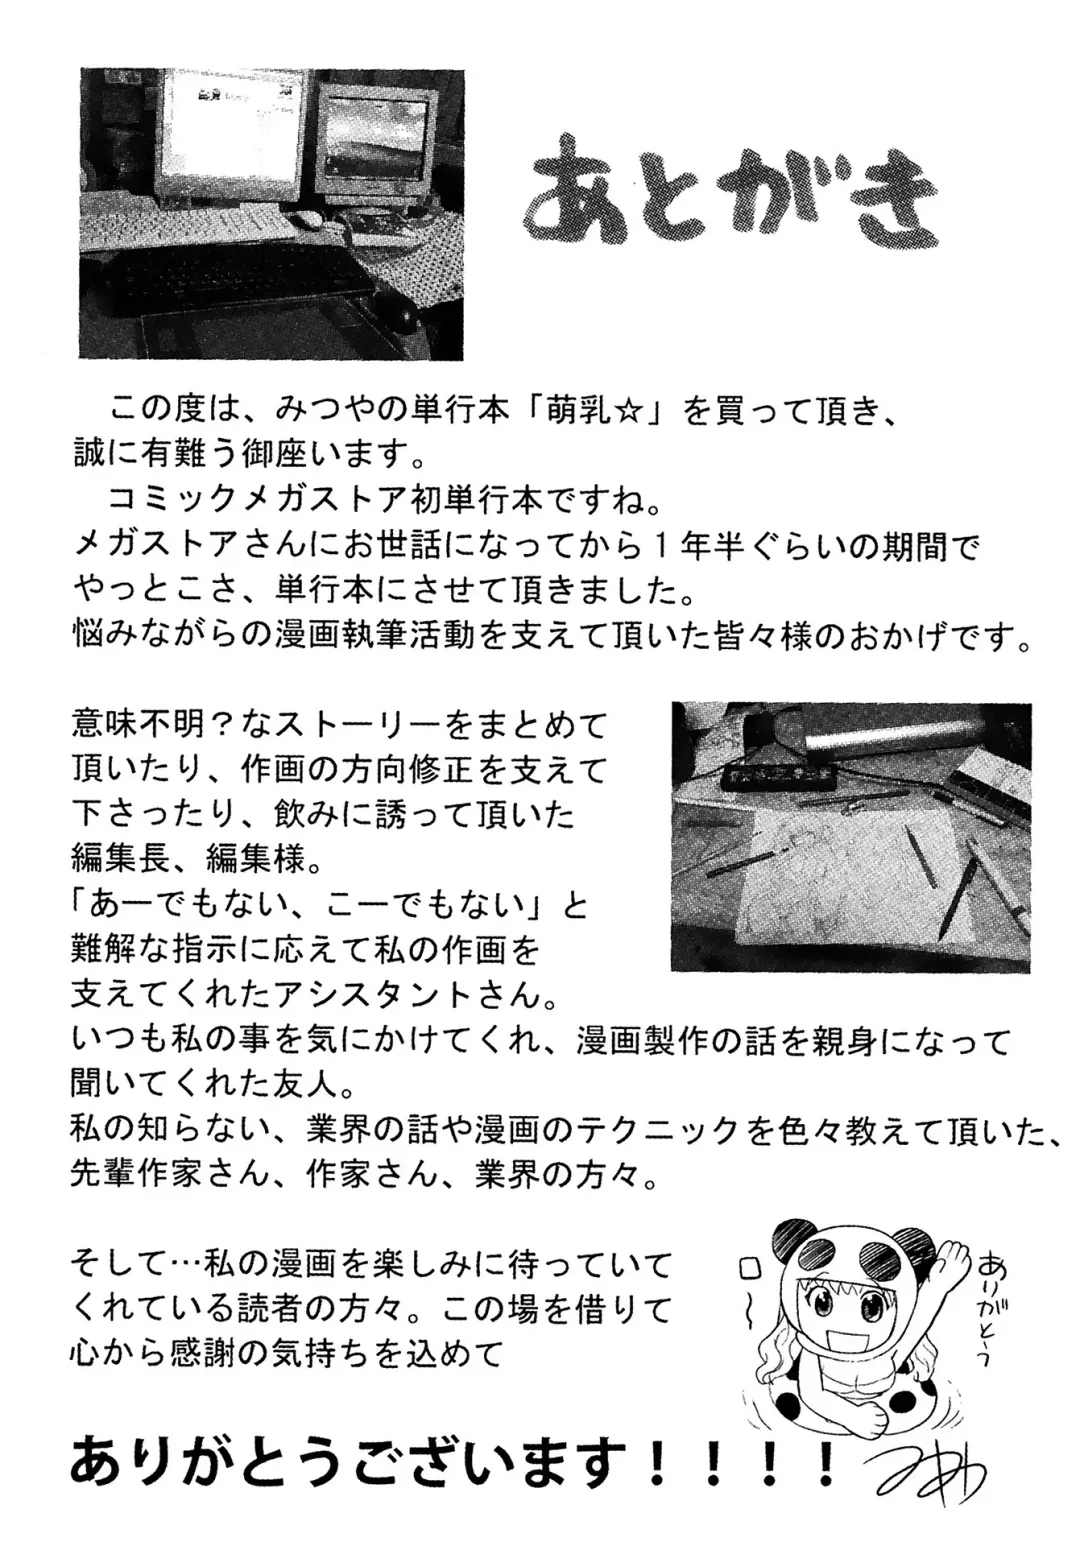 あとがき
この度は、みつやの単行本「萌乳☆」を買って頂き、
誠に有難う御座います。
コミックメガストア初単行本ですね。
メガストアさんにお世話になってから１年半ぐらいの期間で
やっとこさ、単行本にさせて頂きました。
悩みながらの漫画執筆活動を支えて頂いた皆々様のおかげです。
意味不明？なストーリーをまとめて
頂いたり、作画の方向修正を支えて
下さったり、飲みに誘って頂いた
編集長、編集様。
「あーでもない、こーでもない」と
難解な指示に応えて私の作画を
支えてくれたアシスタントさん。
いつも私の事を気にかけてくれ、漫画製作の話を親身になって
聞いてくれた友人。
私の知らない、業界の話や漫画のテクニックを色々教えて頂いた、
先輩作家さん、作家さん、業界の方々。
そして…私の漫画を楽しみに待っていて
くれている読者の方々。この場を借りて
心から感謝の気持ちを込めて
ありがとう
ありがとうございます！！！！